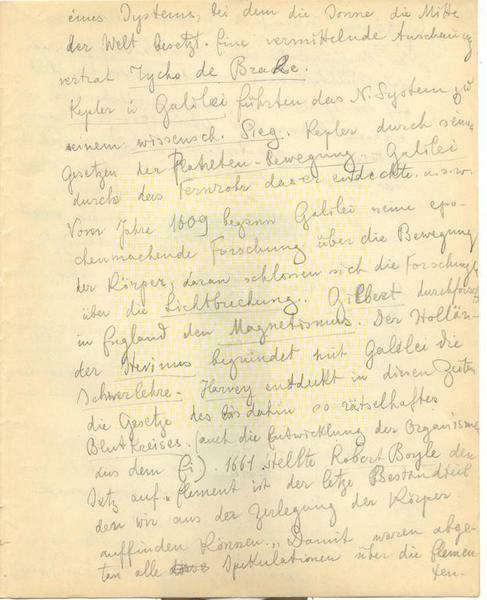 eines Systems, bei dem die Sonne die Mitte
der Welt besetzt. Eine vermittelnde Anschauung
vertrat Tycho de Brahe.
Kepler u Galilei führten das N. System zu
seinem wissensch. Sieg. Kepler durch seine
Gesetzen der Planeten-Bewegung, Galilei
durch das Fernrohr das er entdeckte. u.s.w.
Vom Jahre 1609 begann Galilei seine epo-
chenmachende Forschung über die Bewegung
der Körper, daran schlossen sich die Forschung
über die Lichtbrechung. Gilbert durchforscht
in England den Magnetismus. Der Hollän-
der Stevinus begründet mit Galilei die
Schwerlehre. Harvey entdeckt in diesen Zeiten
die Gesetze des bis dahin so rätselhaftes
Blutkreises. (auch die Entwicklung der Organismen
aus dem Ei). 1661 stellte Robert Boyle den
Satz auf „Element ist der letze Bestandteil
den wir aus der Zerlegung der Körper
auffinden können.„ Damit waren abge-
tan alle Spekulationen über die Elemen-
ten.